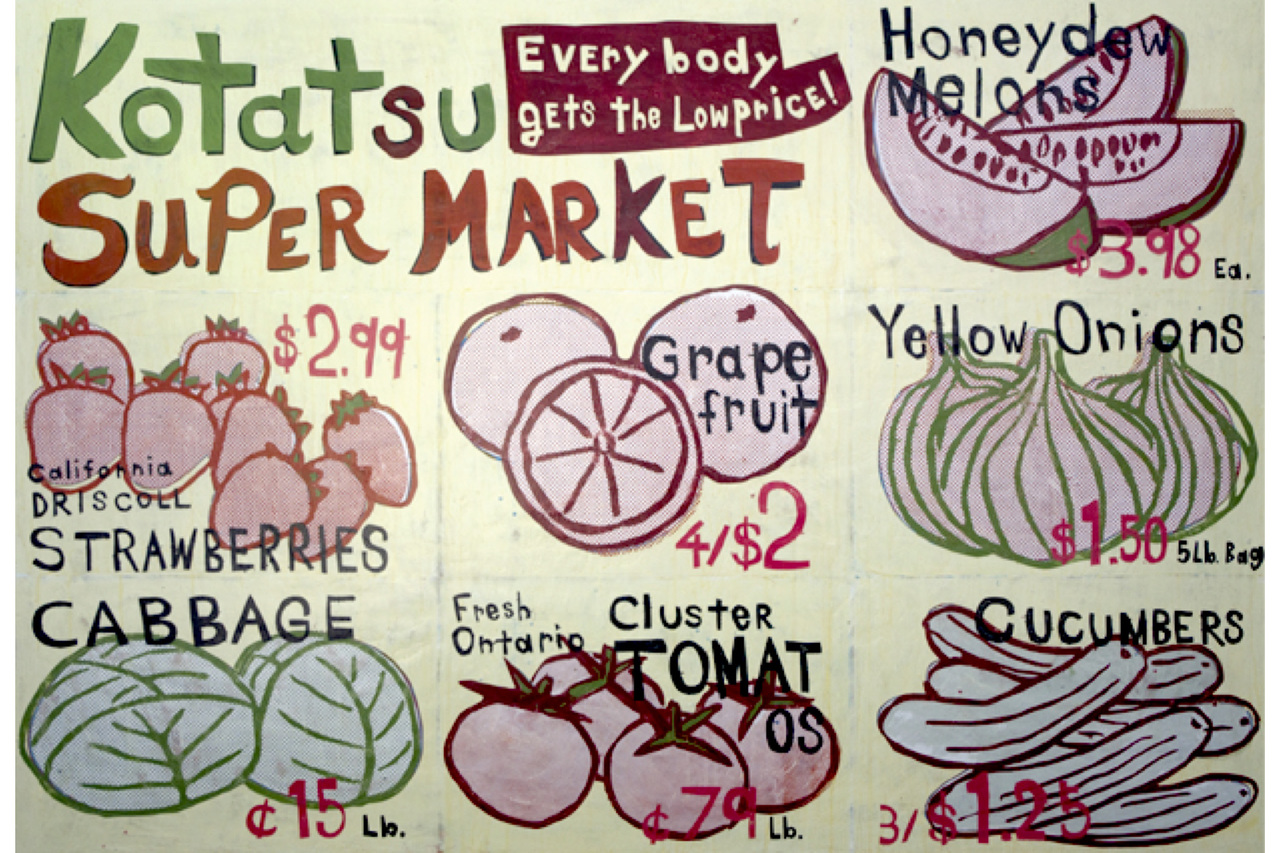 Kotatsu
Every body
gets the Low price!
SuPER MARKET
Honeydew
Melons
$3.98 Ea.
$2.99
California
DRISCOLL
STRAWBERRIES
Grape
fruit
4/$2
Yellow Onions
$1.50 5Lb. Bag
CABBAGE
¢15 Lb.
Fresh
Ontario
Cluster
TOMAT
OS
¢79 Lb.
CUCUMBERS
3/$1.25